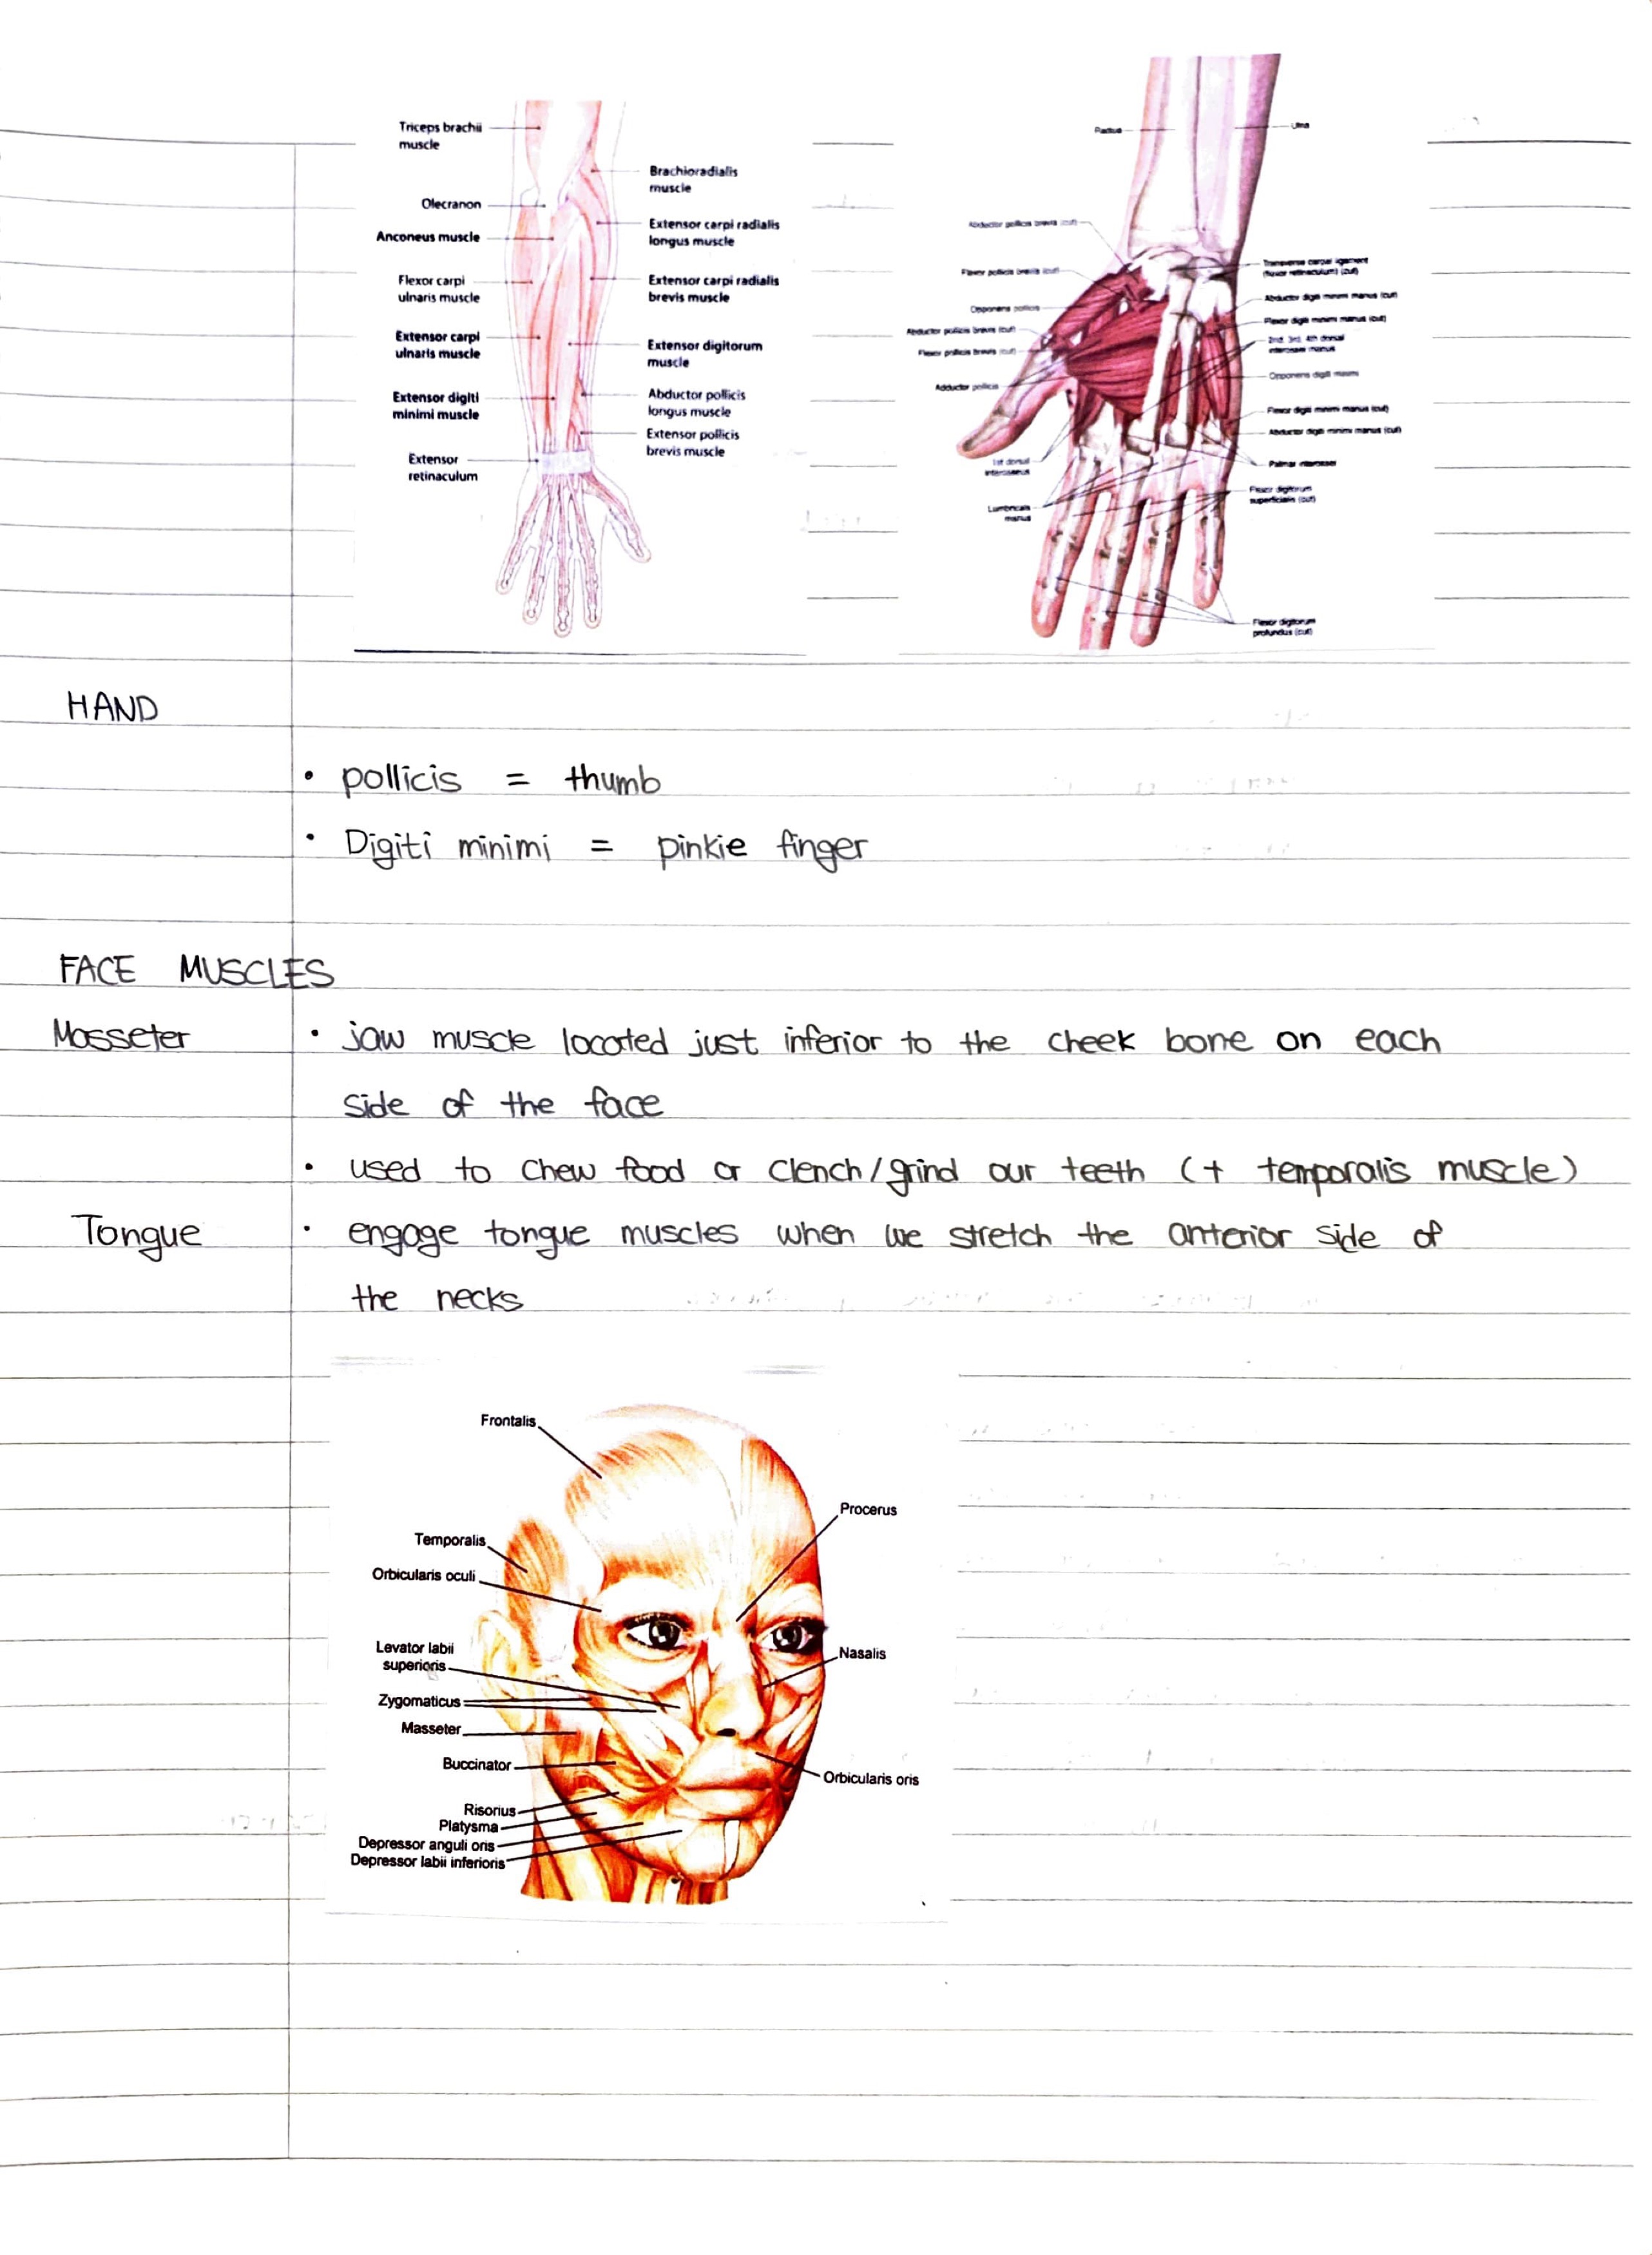 Triceps brachii
muscle
Olecranon
Anconeus muscle
Flexor carpi
ulnaris muscle
Extensor carpi
ulnaris muscle
Extensor digiti
minimi muscle
Extensor
retinaculum
Brachioradialis
muscle
Extensor carpi radialis
longus muscle
Extensor carpi radialis
brevis muscle
Extensor digitorum
muscle
Abductor pollicis
longus muscle
Extensor pollicis
brevis muscle
Radius
Ulna
Abductor pollicis brevis (cut)
Flexor pollicis brevis (cut)
Opponens pollicis
Abductor pollicis brevis (cut)
Flexor pollicis brevis (cut)
Adductor pollicis
1st dorsal
interosseus
Lumbricals
manus
Transverse carpal ligament
(flexor retinaculum) (cut)
Abductor digiti minimi manus (cut)
Flexor digiti minimi manus (cut)
2nd, 3rd, 4th dorsal
interossei manus
Opponens digiti minimi
Flexor digiti minimi manus (cut)
Abductor digiti minimi manus (cut)
Palmar interossei
Flexor digitorum
superficialis (cut)
Flexor digitorum
profundus (cut)
HAND
• pollicis = thumb
• Digiti minimi = pinkie finger
FACE MUSCLES
Masseter • jaw muscle located just inferior to the cheek bone on each
side of the face
• used to chew food or clench/grind our teeth (+ temporalis muscle)
Tongue • engage tongue muscles when we stretch the anterior side of
the necks
Frontalis
Temporalis
Orbicularis oculi
Levator labii
superioris
Zygomaticus
Masseter
Buccinator
Risorius
Platysma
Depressor anguli oris
Depressor labii inferioris
Procerus
Nasalis
Orbicularis oris